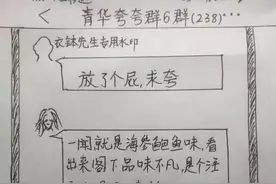 < 青华夸夸群6群(238)…
衣钵先生专用水印
放了个屁,求夸
一闻就是海参鲍鱼味,看
出来阁下品味不凡,是个注